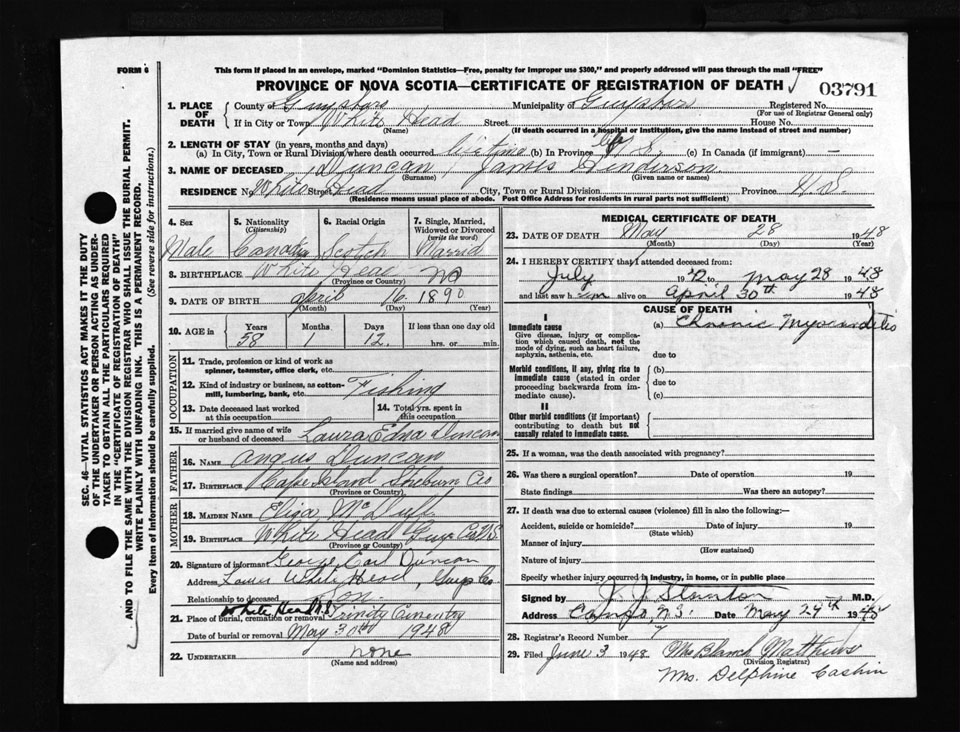 FORM 6
This form if placed in an envelope, marked "Dominion Statistics—Free, penalty for improper use $300," and properly addressed will pass through the mail "FREE"
PROVINCE OF NOVA SCOTIA—CERTIFICATE OF REGISTRATION OF DEATH
03791
1. PLACE OF DEATH
County of Guysboro Municipality of Guysboro Registered No.
(For use of Registrar General only)
If in City or Town White Head Street House No.
(Name) (If death occurred in a hospital or institution, give the name instead of street and number)
2. LENGTH OF STAY (in years, months and days)
(a) In City, Town or Rural Division where death occurred lifetime (b) In Province (c) In Canada (if immigrant) —
3. NAME OF DECEASED Duncan, James Henderson.
(Surname) (Given name or names)
RESIDENCE No. White Street Head City, Town or Rural Division Province N.S.
(Residence means usual place of abode. Post Office Address for residents in rural parts not sufficient)
4. Sex Male
5. Nationality (Citizenship) Canadian
6. Racial Origin Scotch
7. Single, Married, Widowed or Divorced (write the word) Married
8. BIRTHPLACE White Head
(Province or County)
9. DATE OF BIRTH April 16 1890
(Month) (Day) (Year)
10. AGE in Years 58 Months 1 Days 12 If less than one day old hrs. or min.
OCCUPATION
11. Trade, profession or kind of work as spinner, teamster, office clerk, etc.
12. Kind of industry or business, as cotton-mill, lumbering, bank, etc. Fishing
13. Date deceased last worked at this occupation
14. Total yrs. spent in this occupation
15. If married give name of wife or husband of deceased Laura Edna Duncan
FATHER
16. NAME Angus Duncan
17. BIRTHPLACE Cape Island Shelburn Co
(Province or County)
MOTHER
18. MAIDEN NAME Eliza
19. BIRTHPLACE White Head Guys Co NS
(Province or County)
20. Signature of informant George Earl Duncan
Address Lower White Head, Guys Co
Relationship to deceased Son.
21. Place of burial, cremation or removal White Head N.S. Trinity
Date of burial or removal May 30th 1948
22. UNDERTAKER none
(Name and address)
MEDICAL CERTIFICATE OF DEATH
23. DATE OF DEATH May 28 1948
(Month) (Day) (Year)
24. I HEREBY CERTIFY that I attended deceased from:
July 1942 to May 28 1948
and last saw him alive on April 30th 1948
CAUSE OF DEATH
I
Immediate cause
Give disease, injury or complication which caused death, not the mode of dying, such as heart failure, asphyxia, asthenia, etc.
(a) Chronic Myocarditis
due to
Morbid conditions, if any, giving rise to immediate cause (stated in order proceeding backwards from immediate cause).
(b)
due to
(c)
II
Other morbid conditions (if important) contributing to death but not causally related to immediate cause.
25. If a woman, was the death associated with pregnancy?
26. Was there a surgical operation? Date of operation 19
State findings Was there an autopsy?
27. If death was due to external causes (violence) fill in also the following:—
Accident, suicide or homicide? Date of injury 19
(State which)
Manner of injury
(How sustained)
Nature of injury
Specify whether injury occurred in industry, in home, or in public place
Signed by J. J. Stanton M.D.
Address Canso, N.S. Date May 29th 1948
28. Registrar's Record Number 7
29. Filed June 3 1948 Mrs Blanch Matthews
(Division Registrar)
Mrs. Delphine Cashin
SEC. 46—VITAL STATISTICS ACT MAKES IT THE DUTY
OF THE UNDERTAKER OR PERSON ACTING AS UNDER-
TAKER TO OBTAIN ALL THE PARTICULARS REQUIRED
IN THE "CERTIFICATE OF REGISTRATION OF DEATH"
AND TO FILE THE SAME WITH THE DIVISION REGISTRAR WHO SHALL ISSUE THE BURIAL PERMIT.
WRITE PLAINLY WITH UNFADING INK. THIS IS A PERMANENT RECORD.
Every item of Information should be carefully supplied. (See reverse side for instructions.)